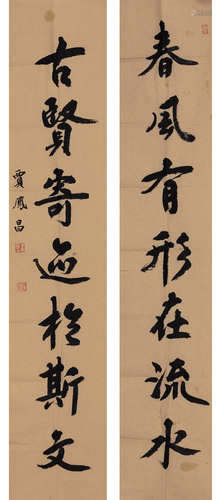 春風有形在流水
古賢寄迹於斯文
賈鳳昌